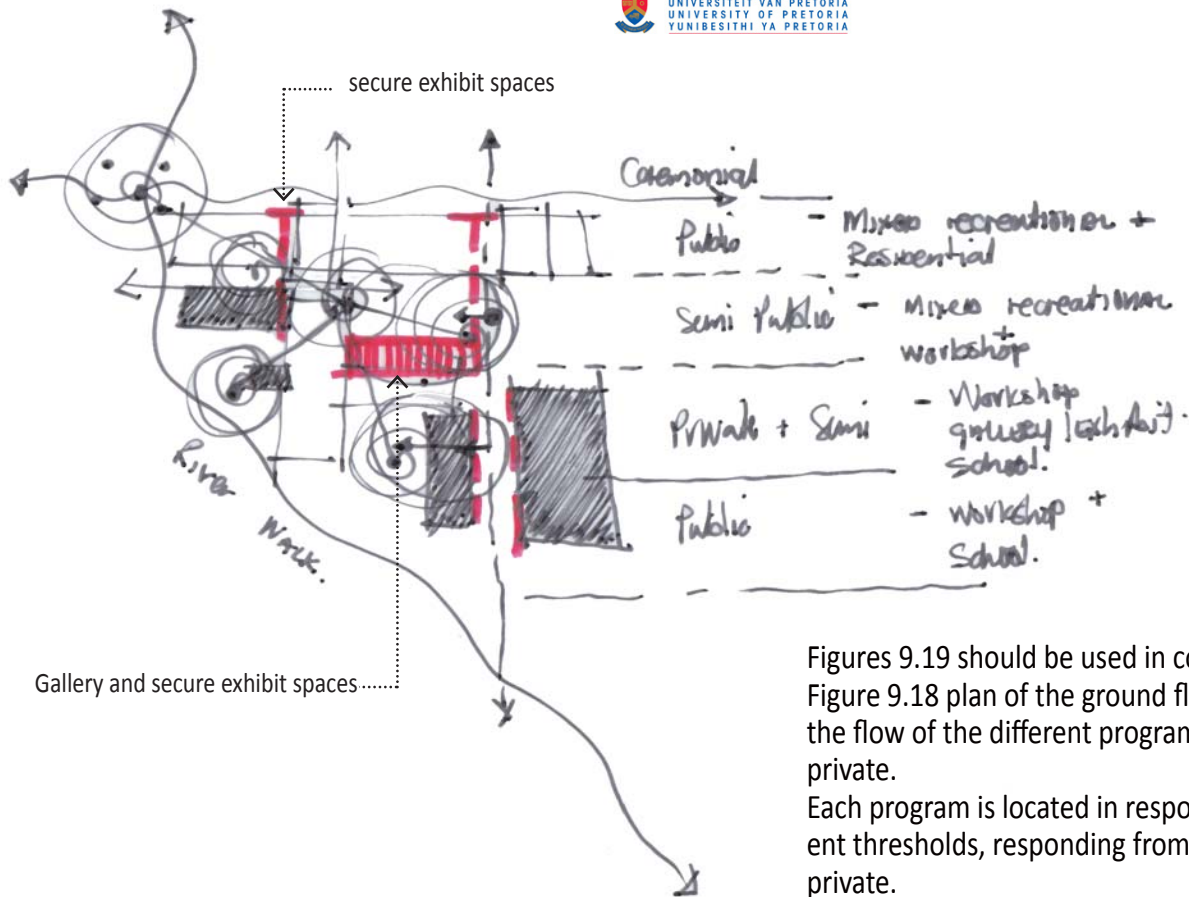 UNIVERSITEIT VAN PRETORIA
UNIVERSITY OF PRETORIA
YUNIBESITHI YA PRETORIA
secure exhibit spaces
Ceremonial
Public - Mixed recreational +
Residential
Semi Public - Mixed recreational
+
workshop
Private + Semi - Workshop
gallery / exhibit.
School.
Public - workshop +
School.
River
Walk.
Gallery and secure exhibit spaces
Figures 9.19 should be used in co
Figure 9.18 plan of the ground fl
the flow of the different program
private.
Each program is located in respo
ent thresholds, responding from
private.